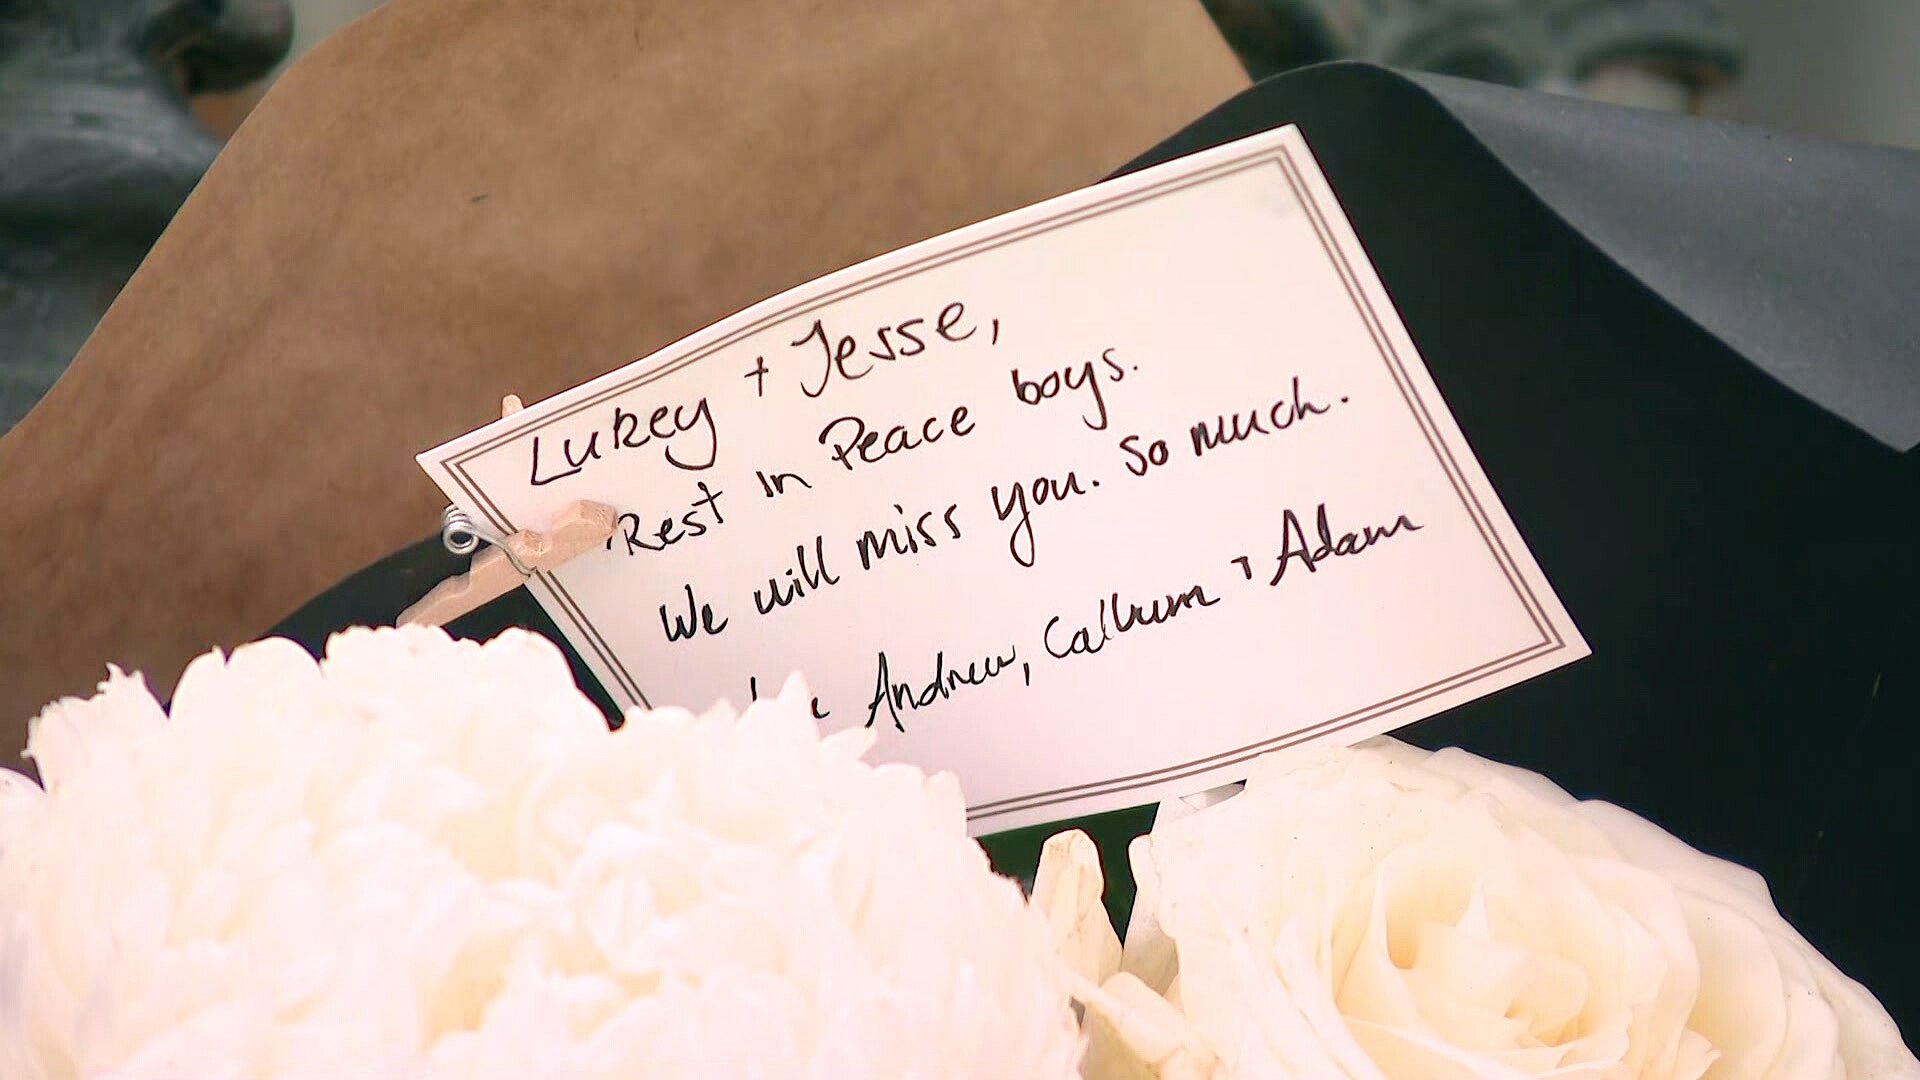 Lukey + Jesse,
Rest in Peace boys.
We will miss you. So much.
Andrew, Callum + Adam